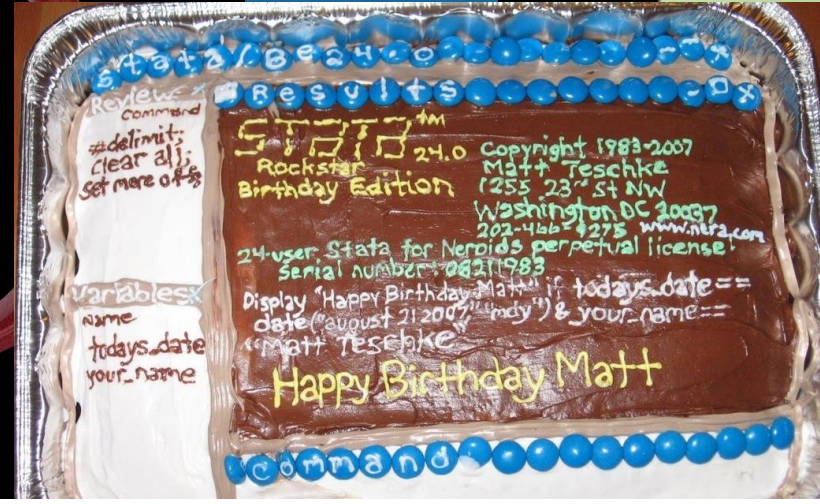 Stata/Be24.0 - □ x
Results - □ x
Review x
Command
#delimit;
clear all;
set more off;
Variables x
Name
todays_date
your_name
STATA™ 24.0
Rockstar
Birthday Edition
Copyright 1983-2007
Matt Teschke
1255 23rd St NW
Washington DC 20037
202-466-9275 www.nera.com
24-user Stata for Neroids perpetual license:
Serial number: 08211983
Display "Happy Birthday Matt" if todays_date==
date("august 21 2007", "mdy") & your_name==
"Matt Teschke"
Happy Birthday Matt
Command